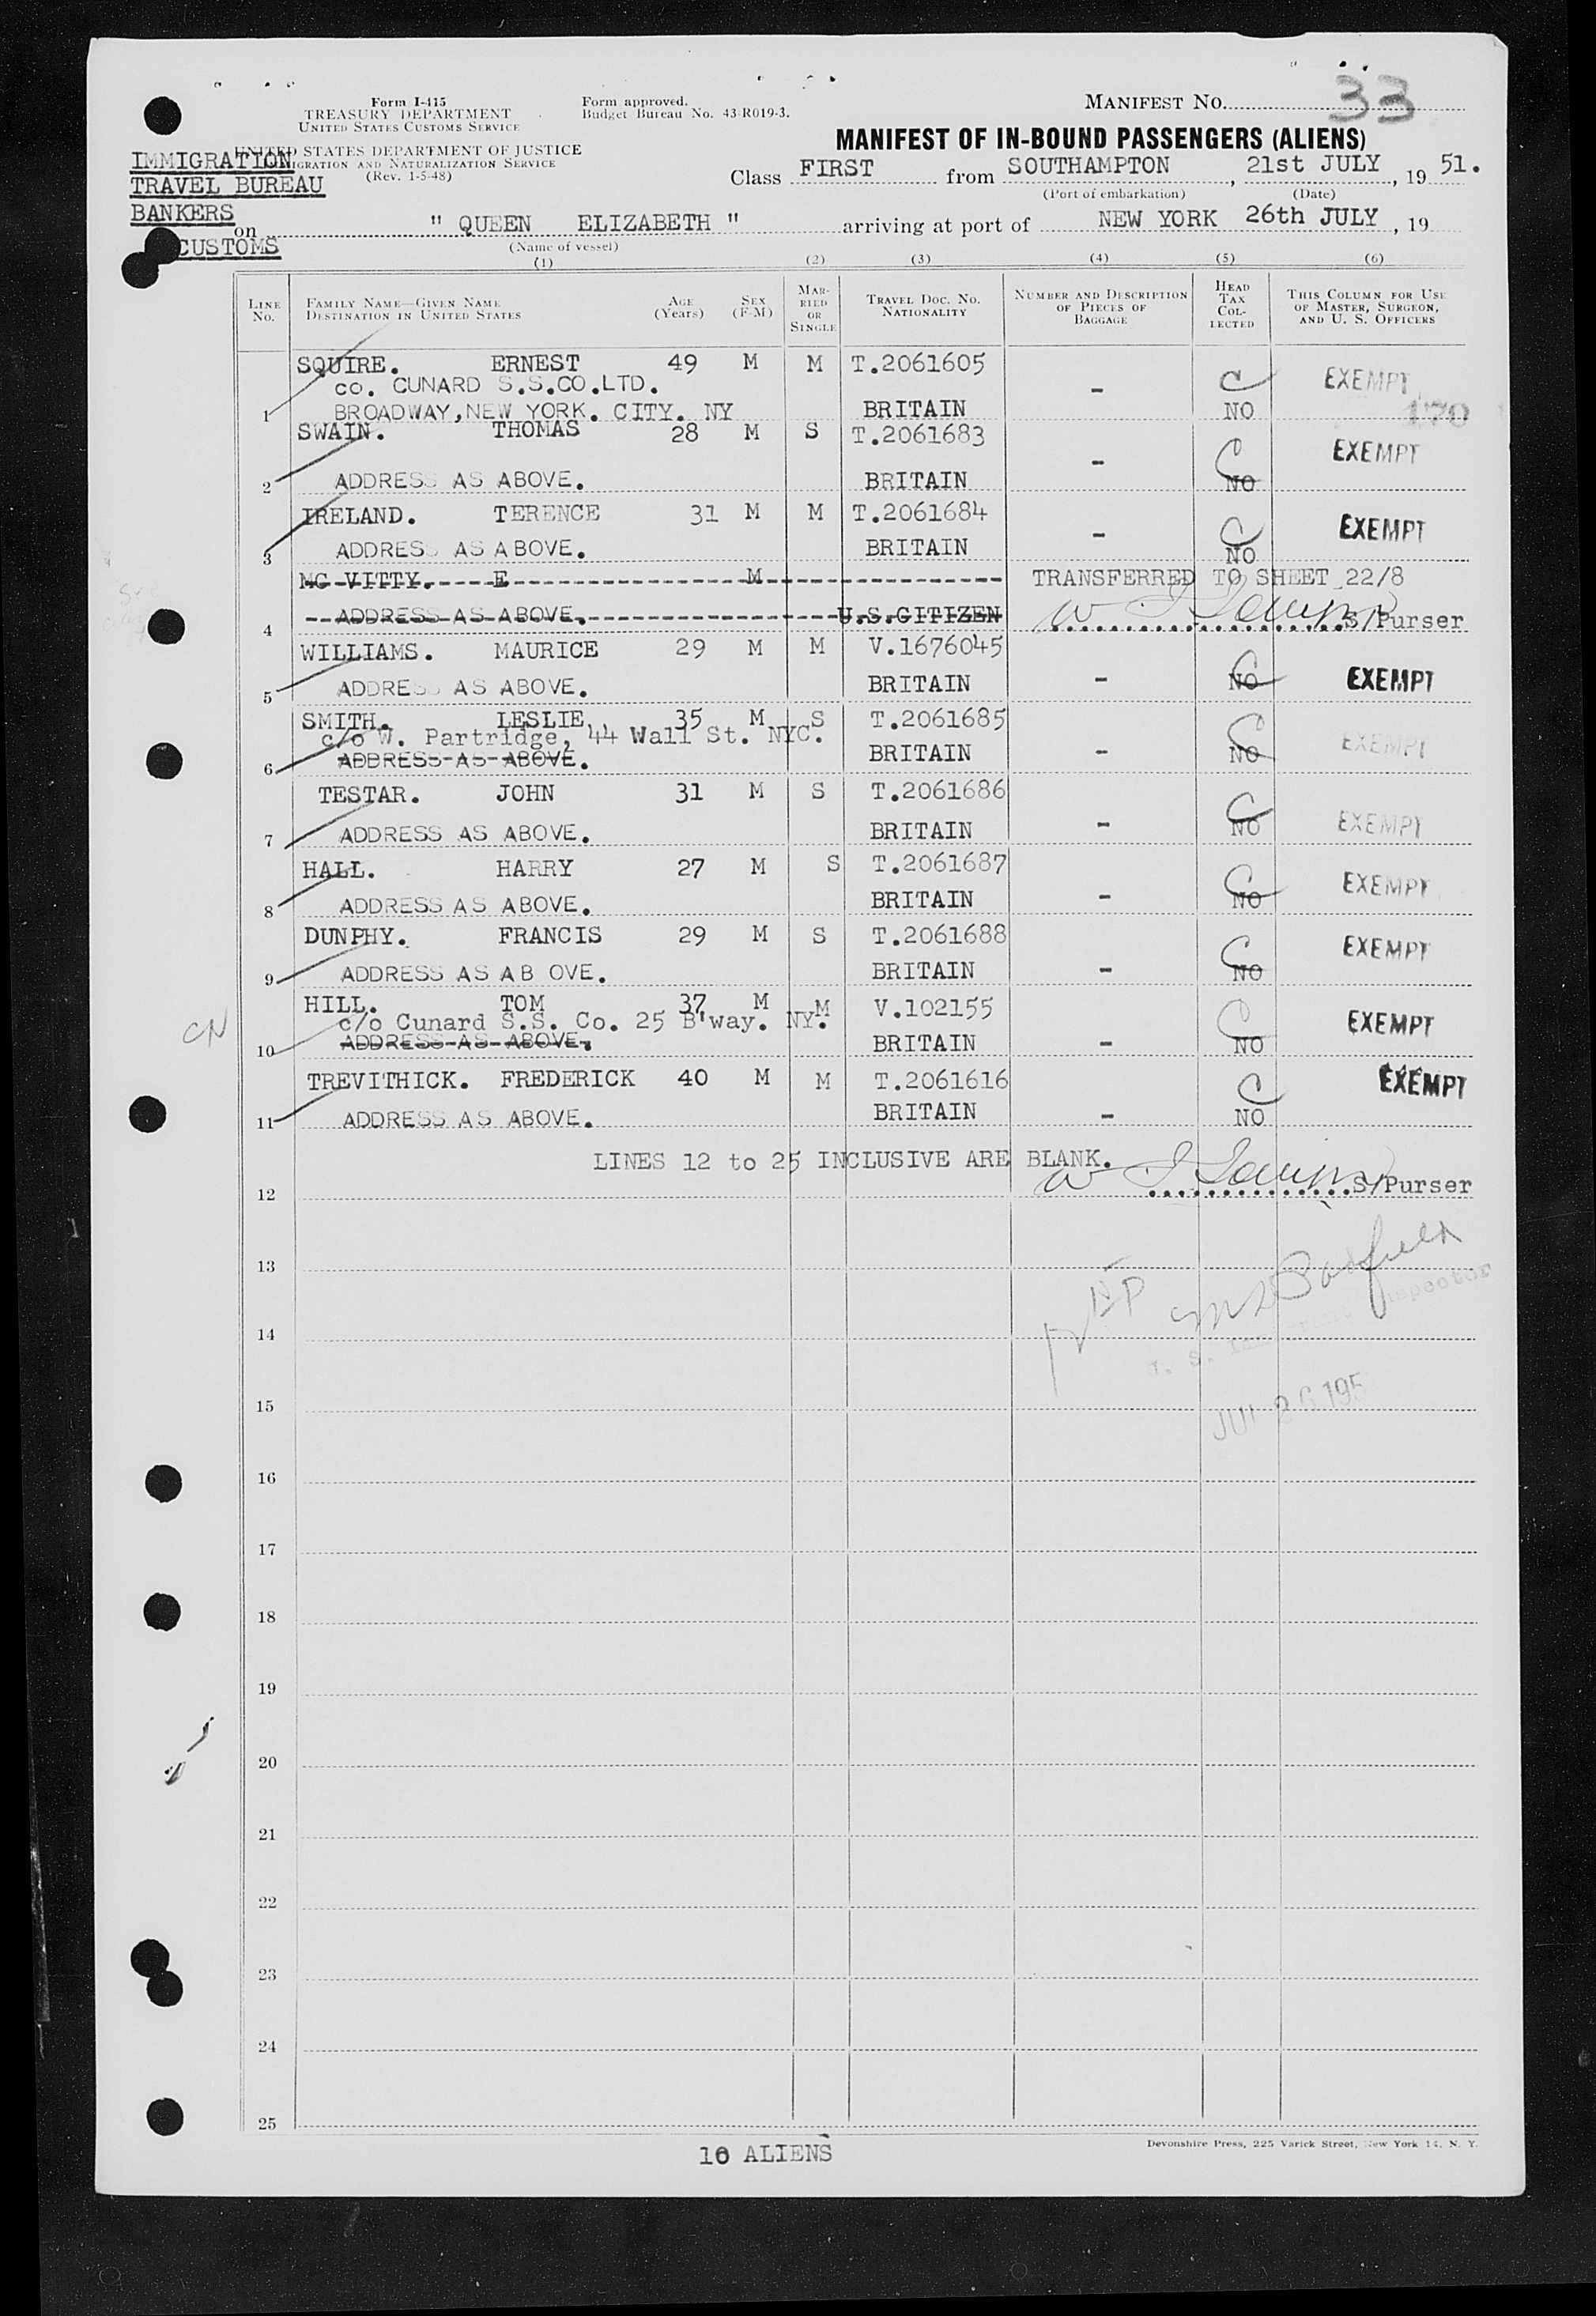 33
Form I-415
TREASURY DEPARTMENT
UNITED STATES CUSTOMS SERVICE
Form approved.
Budget Bureau No. 43-R019-3.
MANIFEST NO.
MANIFEST OF IN-BOUND PASSENGERS (ALIENS)
UNITED STATES DEPARTMENT OF JUSTICE
IMMIGRATION AND NATURALIZATION SERVICE
(Rev. 1-5-48)
IMMIGRATION
TRAVEL BUREAU
BANKERS
CUSTOMS
Class FIRST from SOUTHAMPTON, 21st JULY, 19 51.
(Port of embarkation) (Date)
on " QUEEN ELIZABETH " arriving at port of NEW YORK 26th JULY, 19
(Name of vessel)
(1) (2) (3) (4) (5) (6)
LINE No. FAMILY NAME—GIVEN NAME DESTINATION IN UNITED STATES AGE (Years) SEX (F-M) MARRIED OR SINGLE TRAVEL DOC. NO. NATIONALITY NUMBER AND DESCRIPTION OF PIECES OF BAGGAGE HEAD TAX COLLECTED THIS COLUMN FOR USE OF MASTER, SURGEON, AND U. S. OFFICERS
SQUIRE. ERNEST 49 M M T.2061605
co. CUNARD S.S.CO.LTD. - C EXEMPT
1 BROADWAY, NEW YORK. CITY. NY BRITAIN NO 170
SWAIN. THOMAS 28 M S T.2061683 EXEMPT
2 ADDRESS AS ABOVE. BRITAIN - C NO
IRELAND. TERENCE 31 M M T.2061684 EXEMPT
3 ADDRESS AS ABOVE. BRITAIN - C NO
MC VITTY. E M TRANSFERRED TO SHEET 22/8
4 ADDRESS AS ABOVE. U.S.CITIZEN S/Purser
WILLIAMS. MAURICE 29 M M V.1676045
5 ADDRESS AS ABOVE. BRITAIN - C NO EXEMPT
SMITH. LESLIE 35 M S T.2061685
c/o W. Partridge, 44 Wall St. NYC.
6 ADDRESS AS ABOVE. BRITAIN - C NO EXEMPT
TESTAR. JOHN 31 M S T.2061686
7 ADDRESS AS ABOVE. BRITAIN - C NO EXEMPT
HALL. HARRY 27 M S T.2061687
8 ADDRESS AS ABOVE. BRITAIN - C NO EXEMPT
DUNPHY. FRANCIS 29 M S T.2061688
9 ADDRESS AS AB OVE. BRITAIN - C NO EXEMPT
HILL. TOM 37 M M V.102155
CN c/o Cunard S.S. Co. 25 B'way. NY.
10 ADDRESS AS ABOVE. BRITAIN - C NO EXEMPT
TREVITHICK. FREDERICK 40 M M T.2061616 C EXEMPT
11 ADDRESS AS ABOVE. BRITAIN - NO
LINES 12 to 25 INCLUSIVE ARE BLANK.
12 S/Purser
13
14
15
JUL 26 195
16
17
18
19
20
21
22
23
24
25
10 ALIENS
Devonshire Press, 225 Varick Street, New York 14, N. Y.